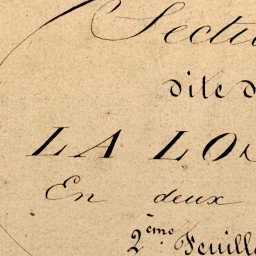 Secti
dite d
LA LO
En deux
2ème Feuille